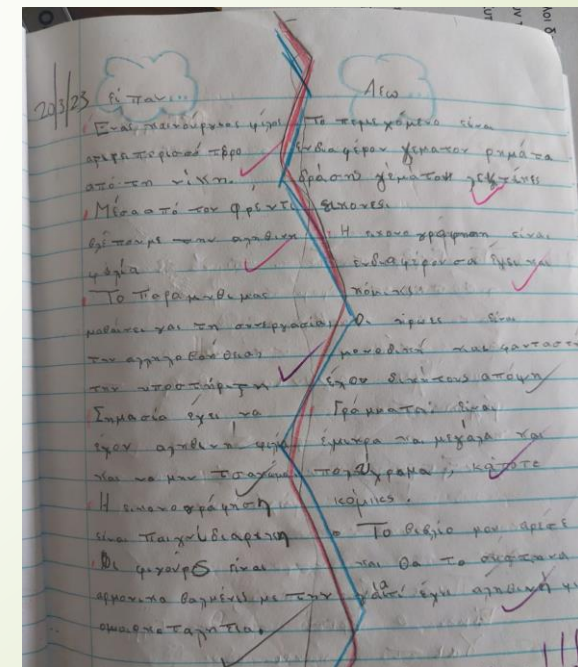 20/3/23
είπαν...
Ένας καινούργιος φίλος
από τη νίκη.
Μέσα από τον φρέντι
βλέπουμε την αληθινή
φιλία
Το παραμύθι μας
μαθαίνει και τη συνεργασία
την αλληλοβοήθεια
την υποστήριξη
Σημασία έχει να
έχον αληθινή φιλία
και να μην
Η εικονογράφηση
είναι παιχνιδιάρικη
Οι είναι
αρμονικά βαλμένα με την
Λέω
Το περιεχόμενο είναι
ενδιαφέρον γεμάτον ρήματα
δράσης γεμάτον λεκτικές
εικονες.
Η εικονογράφηση είναι
ενδιαφέρουσα έχει και
κόμικς.
Οι ήρωες είναι
μοναδικοί και φανταστι
έχον δική τους άποψη
Γράμματα: είναι
έμικρα και μεγάλα και
κάποτε
κόμικς.
Το βιβλίο μου άρεσε
και θα το
γιατί έχει αληθινή φι